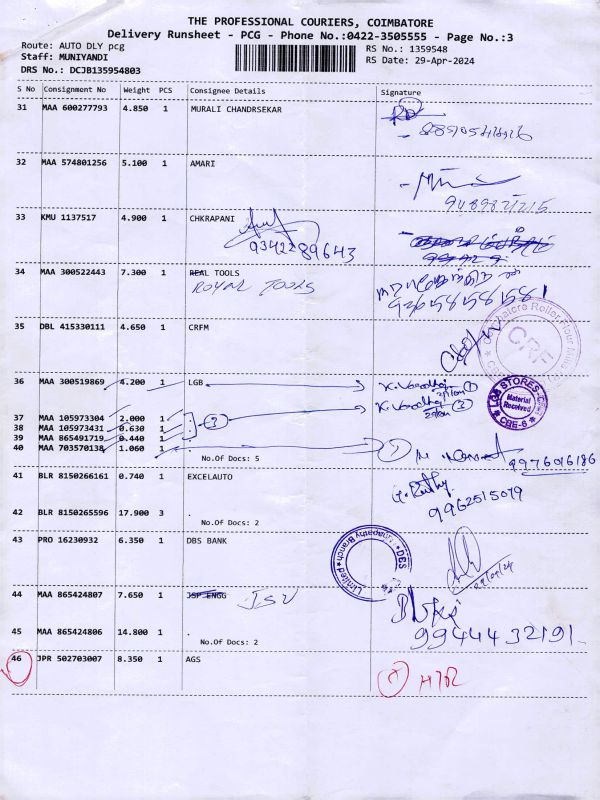 THE PROFESSIONAL COURIERS, COIMBATORE
Delivery Runsheet - PCG - Phone No.:0422-3505555 - Page No.:3
Route: AUTO DLY pcg
RS No.: 1359548
Staff: MUNIYANDI
RS Date: 29-Apr-2024
DRS No.: DCJB135954803
S No Consignment No Weight PCS Consignee Details Signature
31 MAA 600277793 4.850 1 MURALI CHANDRSEKAR
32 MAA 574801256 5.100 1 AMARI
9489821215
33 KMU 1137517 4.900 1 CHKRAPANI
9342289643
34 MAA 300522443 7.300 1 REAL TOOLS
ROYAL TOOLS
9265815858
35 DBL 415330111 4.650 1 CRFM
CRF
36 MAA 300519869 4.200 1 LGB
LGB STORES
Material Received
CBE-6
37 MAA 105973304 2.000 1 .
38 MAA 105973431 0.630 1 .
39 MAA 865491719 0.440 1 .
40 MAA 703570138 1.060 1 .
No.Of Docs: 5
9976016186
41 BLR 8150266161 0.740 1 EXCELAUTO
9962515079
42 BLR 8150265596 17.900 3 .
No.Of Docs: 2
43 PRO 16230932 6.350 1 DBS BANK
Limited
44 MAA 865424807 7.650 1 JSP ENGG JSV
9944432191
45 MAA 865424806 14.800 1 .
No.Of Docs: 2
46 JPR 502703007 8.350 1 AGS